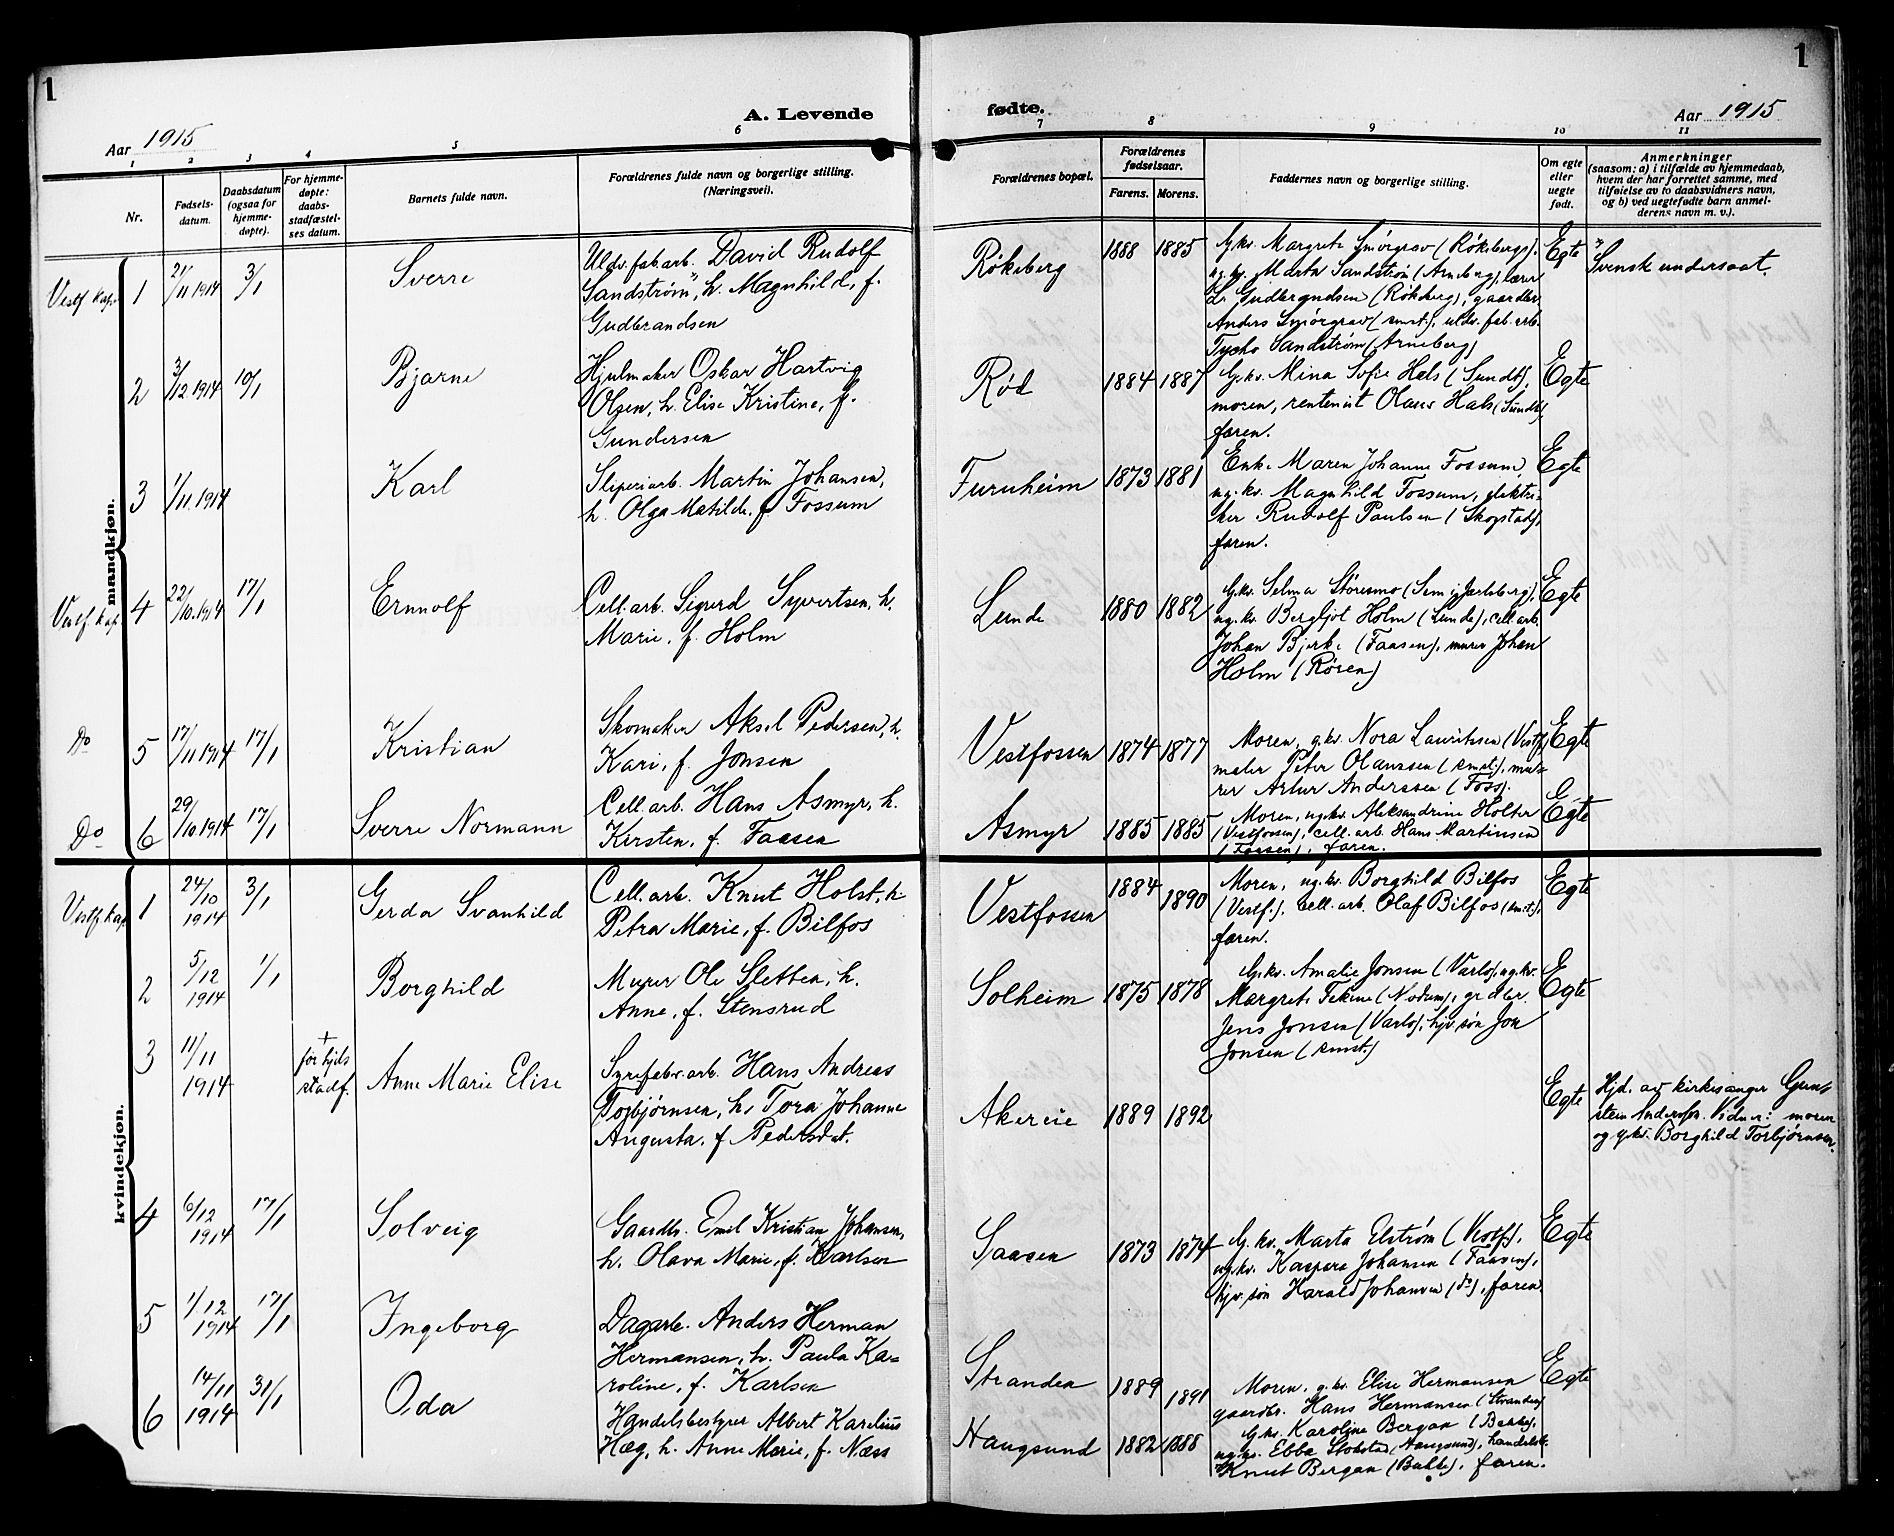 1
A. Levende
Aar 1915
1 2 3 4 5 6
Nr.
Fødsels-
datum.
Daabsdatum
(ogsaa for
hjemme-
døpte).
For hjemme-
døpte:
daabs-
stadfæstel-
ses datum.
Barnets fulde navn.
Forældrenes fulde navn og borgerlige stilling.
(Næringsvei).
mandkjøn.
Vestf. kap. 1 21/11 1914 3/1 Sverre
Uldv. fab. arb. David Rudolf
Sandstrøm, h. Magnhild, f.
Gudbrandsen
2 3/12 1914 10/1 Bjarne
Hjulmaker Oskar Hartvig
Olsen, h. Elise Kristine, f.
Gundersen
3 1/11 1914 Karl
Sliperiarb. Martin Johansen,
h. Olga Matilde, f. Fossum
Vestf. kap. 4 22/10 1914 17/1 Ernnolf
Cell. arb. Sigurd Syvertsen, h.
Marie, f. Holm
Do 5 17/11 1914 17/1 Kristian
Skomaker Aksel Pedersen, h.
Kari, f. Jonsen
Do 6 29/10 1914 17/1 Sverre Normann
Cell. arb. Hans Asmyr, h.
Kirsten, f. Faasen
kvindekjøn.
Vestf. kap. 1 24/10 1914 3/1 Gerda Svanhild
Cell. arb. Knut Holst, h.
Petra Marie, f. Bilfos
2 5/12 1914 1/1 Borghild
Murer Ole Sletten, h.
Anne, f. Stensrud
3 11/11 1914 + før hjds stadf. Anne Marie Elise
Syrefabr. arb. Hans Andreas
Torbjørnsen, h. Tora Johanne
Augusta, f. Pedersdat.
4 6/12 1914 17/1 Solveig
Gaardbr. Emil Kristian Johansen,
h. Olava Marie, f. Karlsen
5 1/12 1914 17/1 Ingeborg
Dagarb. Anders Herman
Hermansen, h. Paula Ka-
roline, f. Karlsen
6 14/11 1914 31/1 Oda
Handelsbestyrer Albert Karelius
Hæg, h. Anne Marie, f. Næss
fødte.
1
Aar 1915
7 8 9 10 11
Forældrenes bopæl.
Forældrenes
fødselsaar.
Farens. Morens.
Faddernes navn og borgerlige stilling.
Om egte
eller
uegte
født.
Anmerkninger
(saasom: a) i tilfælde av hjemmedaab,
hvem der har forrettet samme, med
tilføielse av to daabsvidners navn,
og b) ved uegtefødte barn anmel-
derens navn m. v.).
Røkeberg 1888 1885
Gkv. Margrete Smørgrav (Røkeberg),
ug. kv. Marta Sandstrøm (Arneberg), lærer
Kr. Gudbrandsen (Røkeberg), gaardbr.
Anders Smørgrav (smst.), uldv. fab. arb.
Tycho Sandstrøm (Arneberg)
Egte
Svensk undersaat.
Rød 1884 1887
Gkv. Mina Sofie Hals (Sundt),
moren, rentenist Olaus Hals (Sundt),
faren.
Egte
Furuheim 1873 1881
Enke Maren Johanne Fossum,
ug. kv. Magnhild Fossum, elektri-
ker Rudolf Paulsen (Skogstad),
faren.
Egte
Lunde 1880 1882
Gkv. Selma Støresmo (Sem i Jarlsberg),
ug. kv. Bergljot Holm (Lunde), cell. arb.
Johan Bjerke (Faasen), murer Johan
Holm (Røren)
Egte
Vestfossen 1874 1877
Moren, g. kv. Nora Lauritssen (Vestf.)
maler Peter Olaussen (smst.), mu-
rer Artur Anderssen (Foss).
Egte
Asmyr 1885 1885
Moren, ug. kv. Aleksandrine Holter
(Vestfossen), cell. arb. Hans Martinsen
(Faasen), faren.
Egte
Vestfossen 1884 1890
Moren, ug. kv. Borghild Bilfos
(Vestf.), cell. arb. Olaf Bilfos (smst.),
faren.
Egte
Solheim 1875 1878
Gkv. Amalie Jonsen (Varlo), ug. kv.
Margrete Tekene (Nodum), grdbr.
Jens Jonsen (Varlo), hjv. søn Jon
Jonsen (smst.)
Egte
Akereie 1889 1892
Egte
Hjd. av kirkesanger Gun-
stein Anderssn. Vidner: moren
og gkv. Borghild Torbjørnsen.
Saasen 1873 1874
G. kv. Marta Elstrøm (Vestf.),
ug. kv. Kaspara Johansen (Faasen),
hjv. søn Harald Johansen (do), faren.
Egte
Stranden 1889 1891
Moren, g. kv. Elise Hermansen
gaardbr. Hans Hermansen (Stranden)
Egte
Haugsund 1882 1888
Gkv. Karoline Bergan (Bakke),
ug. kv. Ebba Stokstad (Haugsund), handelsb.
Knut Bergan (Bakke), faren.